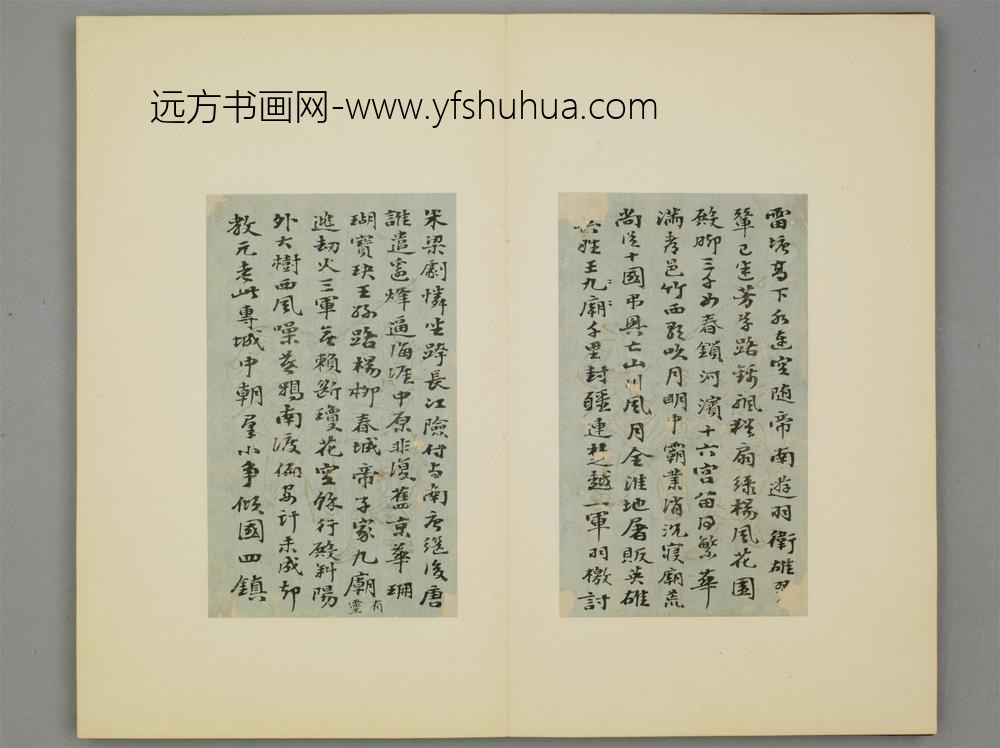 远方书画网-www.yfshuhua.com
雷塘高下水連空随帝南遊羽衛雄翠
輦已迷芳草路錦颿猶扇绿楊風花園
殿脚三千女春鎖河濱十六宫笛同繁華
滿孝邑竹西歌吹月明中霸業消沉寝廟荒
尚從十國弔興亡山川風月全淮地屠販英雄
六姓王九廟千里封疆連越一軍羽檄討
朱梁劇憐坐跨長江險付与南唐继後唐
誰遣窓烽逼海堧中原非復舊京華珊
瑚寶玦王孫路楊栁春城帝子家九廟有靈
逃劫火三軍無賴斷瓊花空餘行殿斜陽
外大樹西風噪暮鴉南渡偏安計未成却
教元老此專城中朝羣小争傾國四鎮